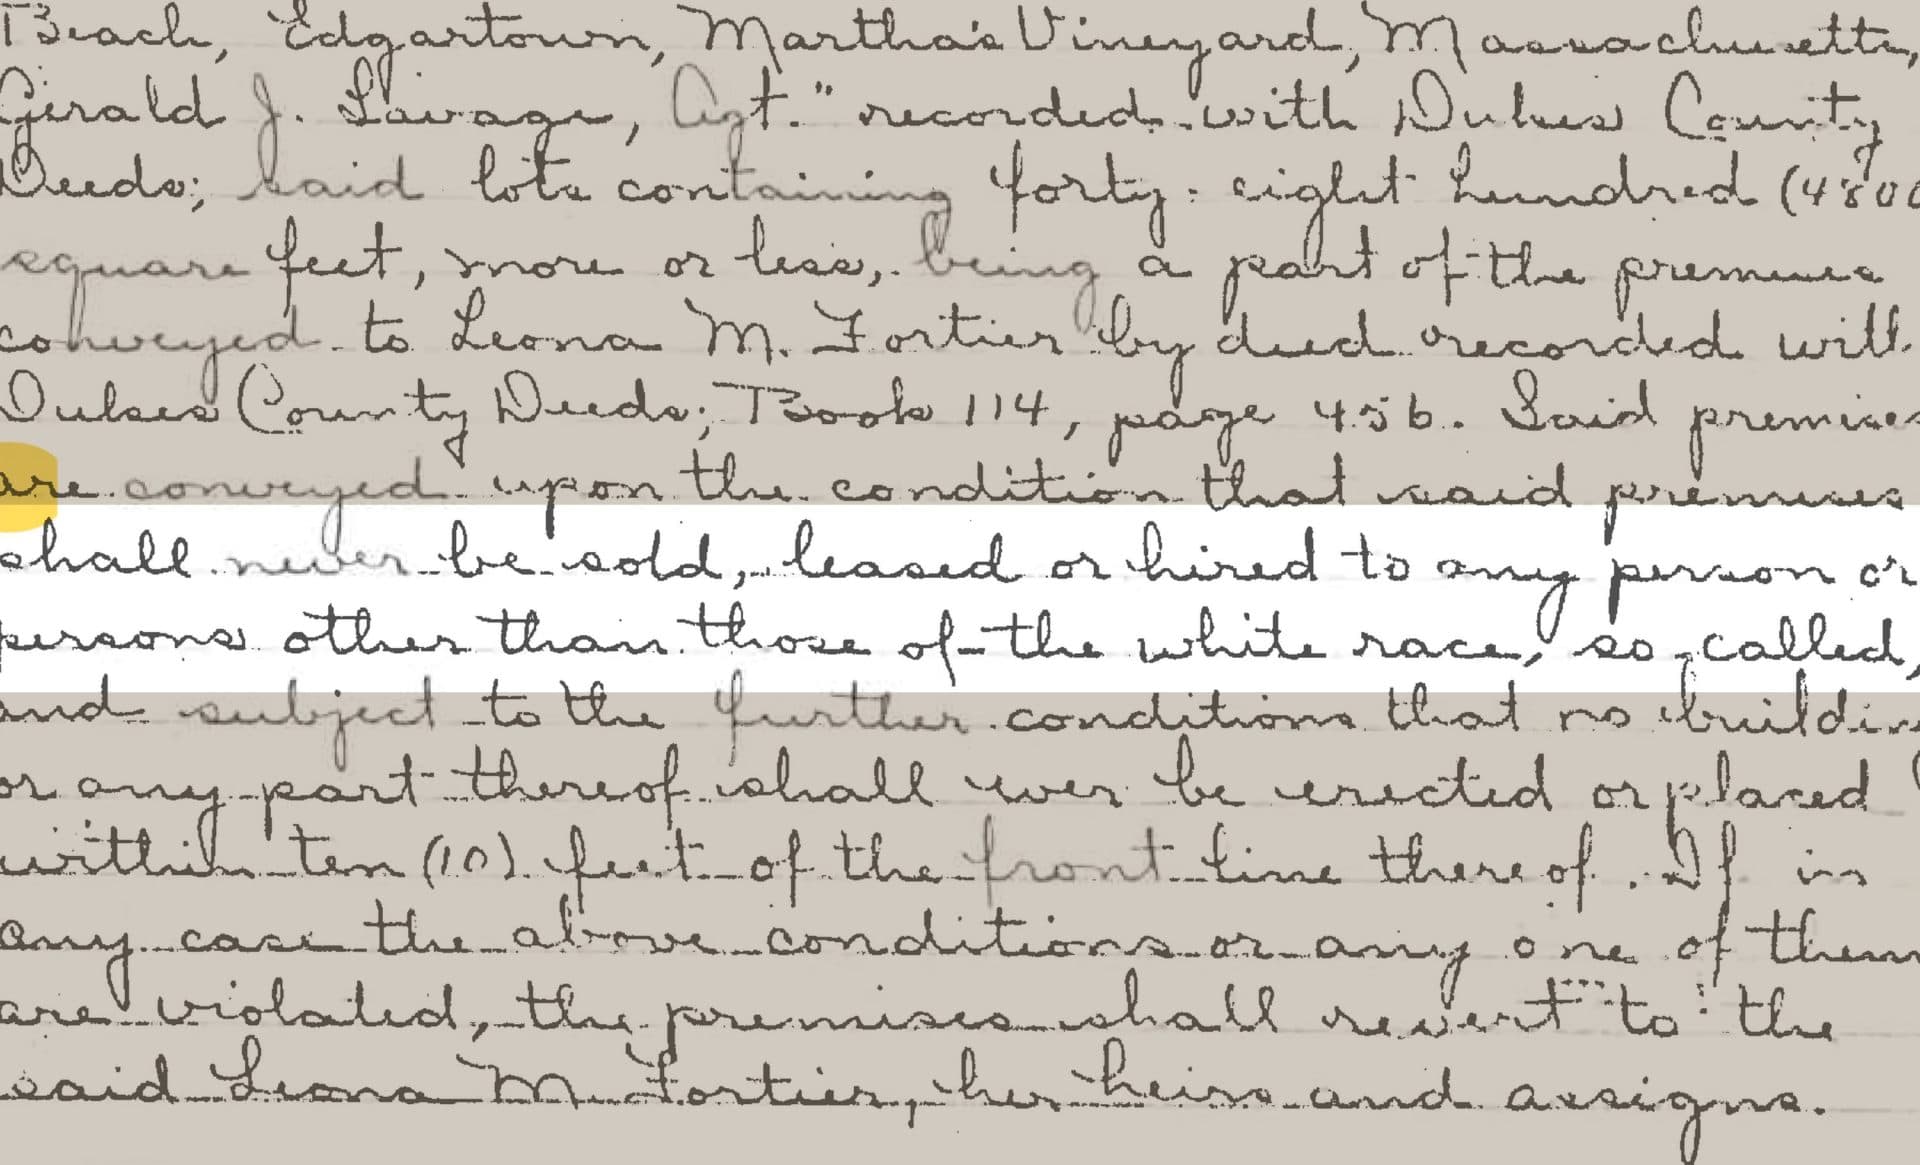 Beach, Edgartown, Martha's Vineyard, Massachusetts,
Gerald J. Savage, Agt." recorded with Dukes County
Deeds; said lots containing forty-eight hundred (4800
square feet, more or less, being a part of the premises
conveyed to Leona M. Fortier by deed recorded with
Dukes County Deeds; Book 114, page 456. Said premises
are conveyed upon the condition that said premises
shall never be sold, leased or hired to any person or
persons other than those of the white race, so-called,
and subject to the further conditions that no buildin
or any part thereof shall ever be erected or placed
within ten (10) feet of the front line thereof. If in
any case the above conditions or any one of them
are violated, the premises shall revert to the
said Leona M. Fortier, her heirs and assigns.